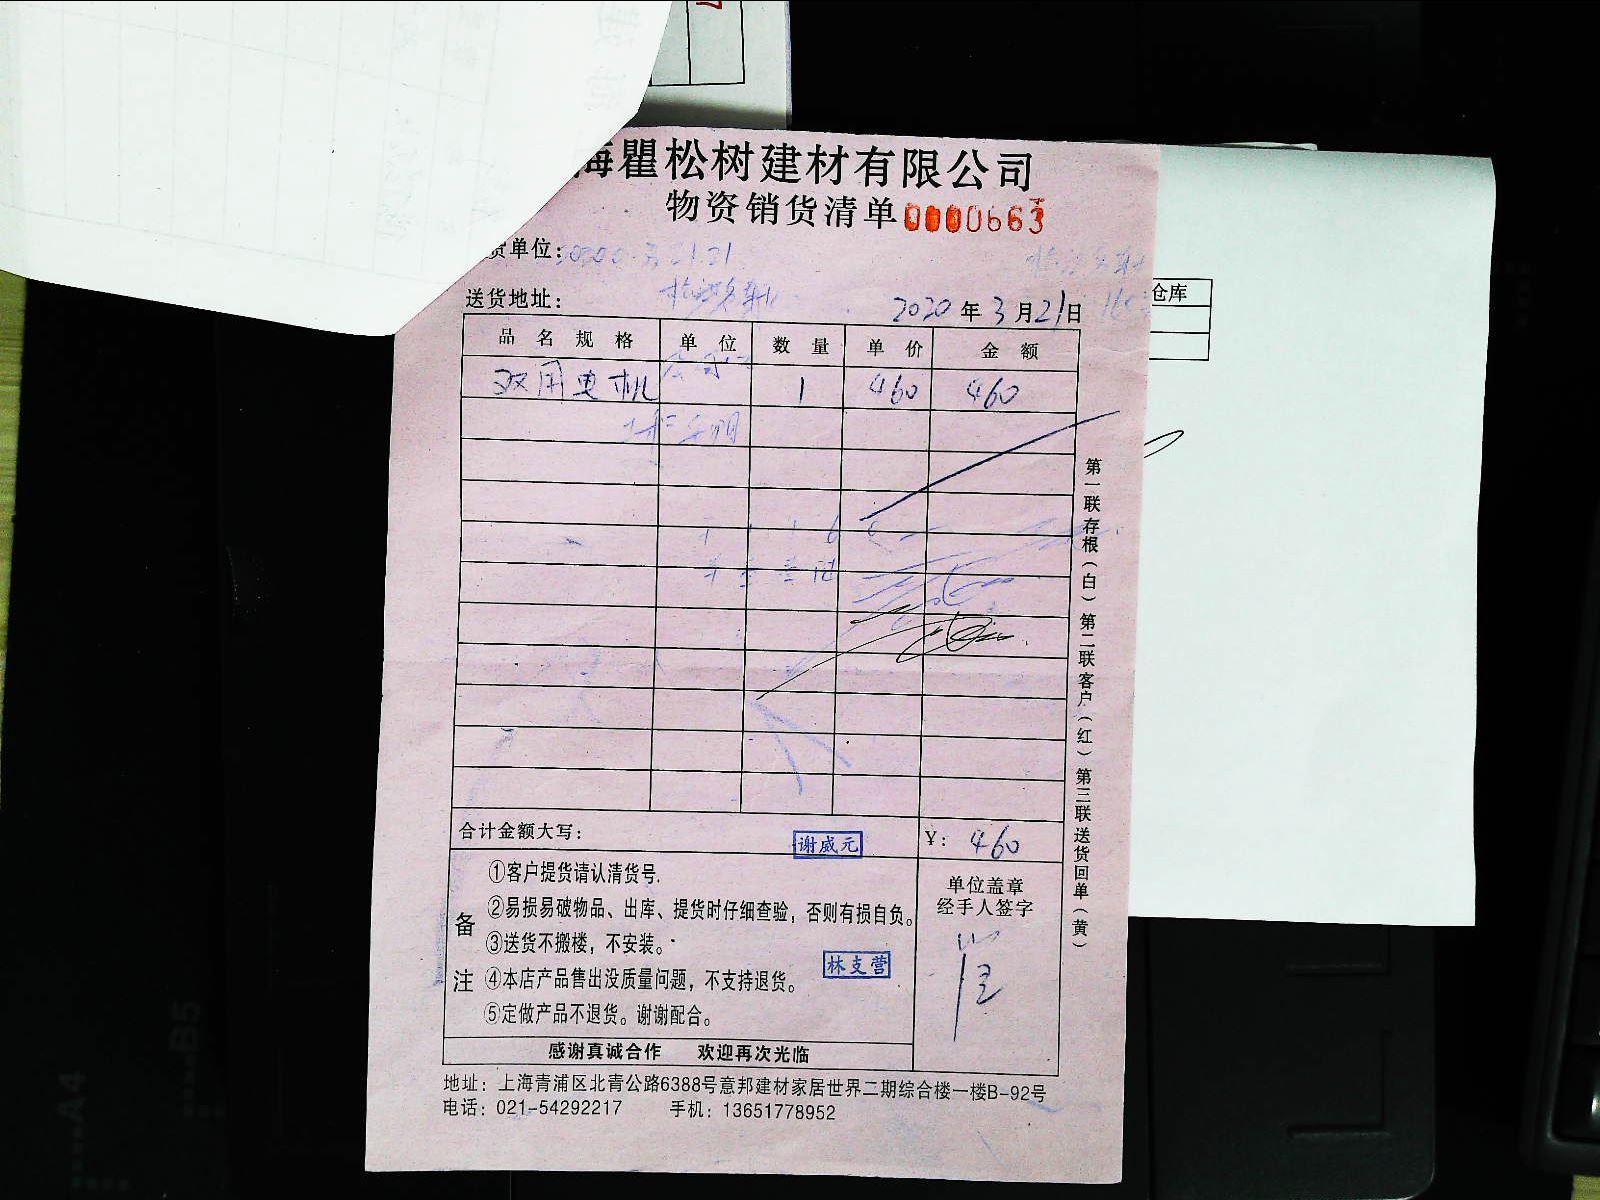 海瞿松树建材有限公司
物资销货清单 0000663
货单位:
送货地址: 2020年3月21日
仓库
品名规格 单位 数量 单价 金额
双用电机 1 460 460
第一联存根(白) 第二联客户(红) 第三联送货回单(黄)
合计金额大写: 谢威元 ¥: 460
备注
①客户提货请认清货号.
②易损易破物品、出库、提货时仔细查验,否则有损自负。
③送货不搬楼,不安装。
④本店产品售出没质量问题,不支持退货。
⑤定做产品不退货。谢谢配合。
林支营
单位盖章
经手人签字
感谢真诚合作 欢迎再次光临
地址: 上海青浦区北青公路6388号意邦建材家居世界二期综合楼一楼B-92号
电话: 021-54292217 手机: 13651778952
A4
B5